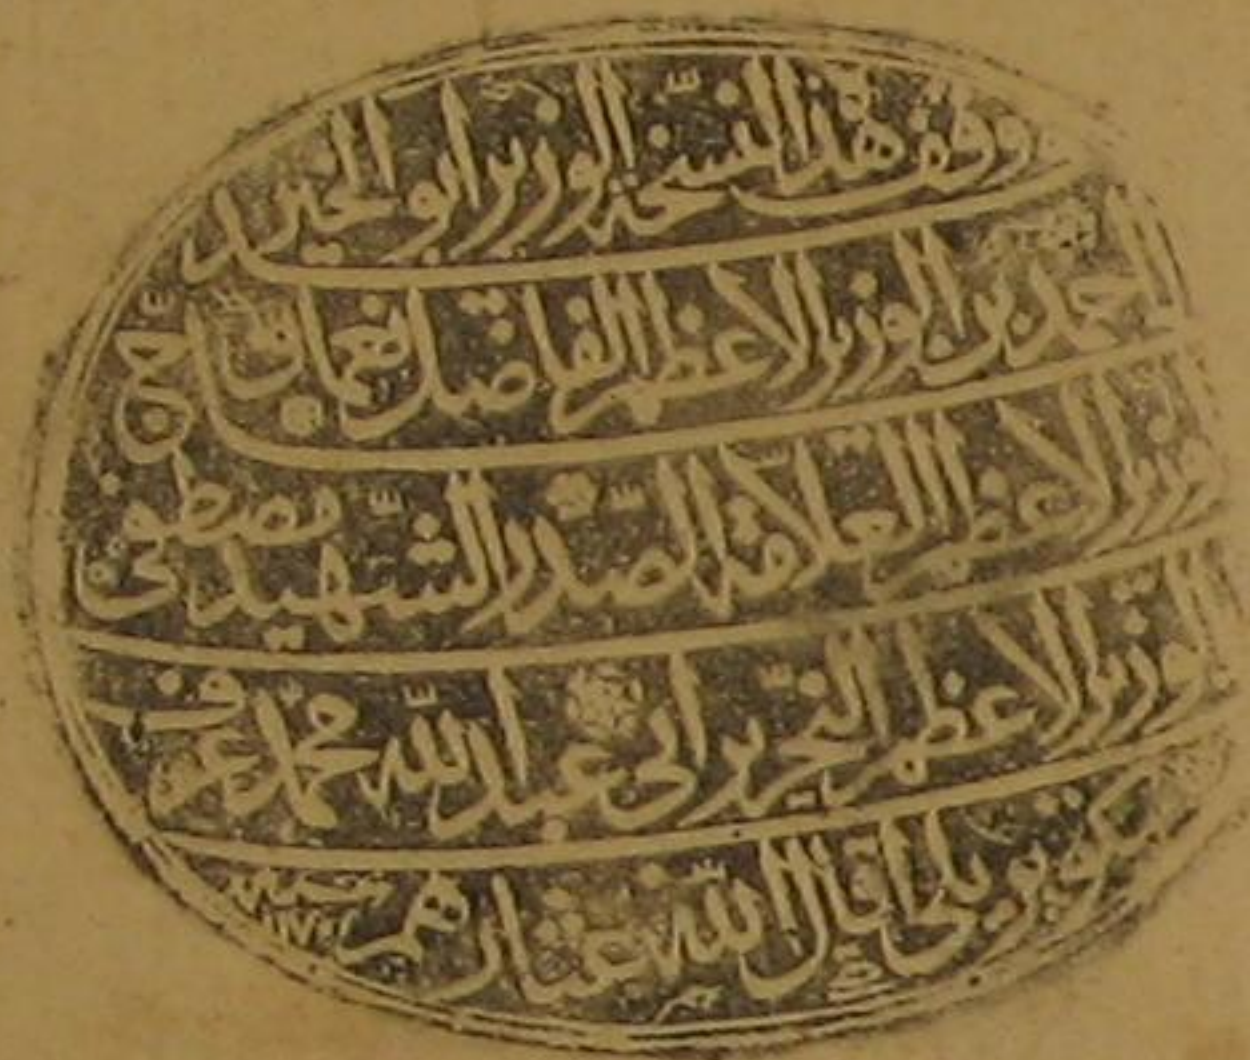 وقف هذا النسخة الوزير ابو الخير
احمد بن الوزير الاعظم الفاضل نعمان بن
الوزير الاعظم العلامة الصدر الشهيد مصطفى بن
الوزير الاعظم النحرير ابي عبد الله محمد عرف
بكوپريلي اقال الله عثارهم